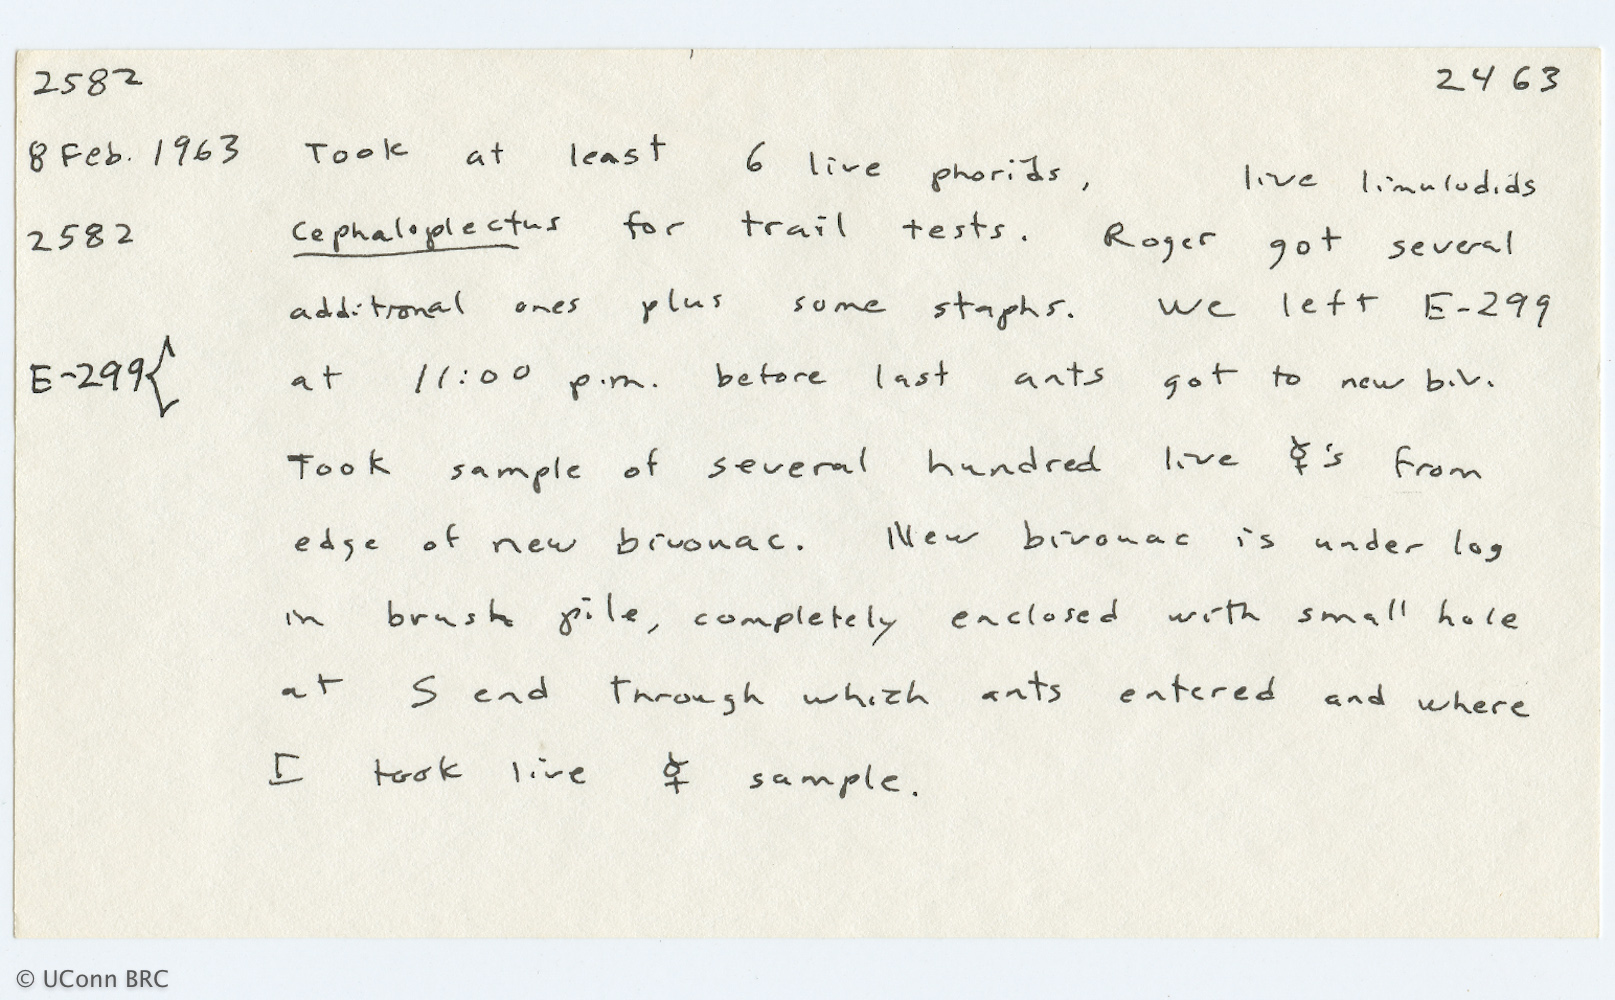 2582 2463
8 Feb. 1963 Took at least 6 live phorids, live limulodids
2582 Cephaloplectus for trail tests. Roger got several
additional ones plus some staphs. We left E-299
E-299{ at 11:00 p.m. before last ants got to new biv.
Took sample of several hundred live ☿'s from
edge of new bivouac. New bivouac is under log
in brush pile, completely enclosed with small hole
at S end through which ants entered and where
I took live ☿ sample.
© UConn BRC